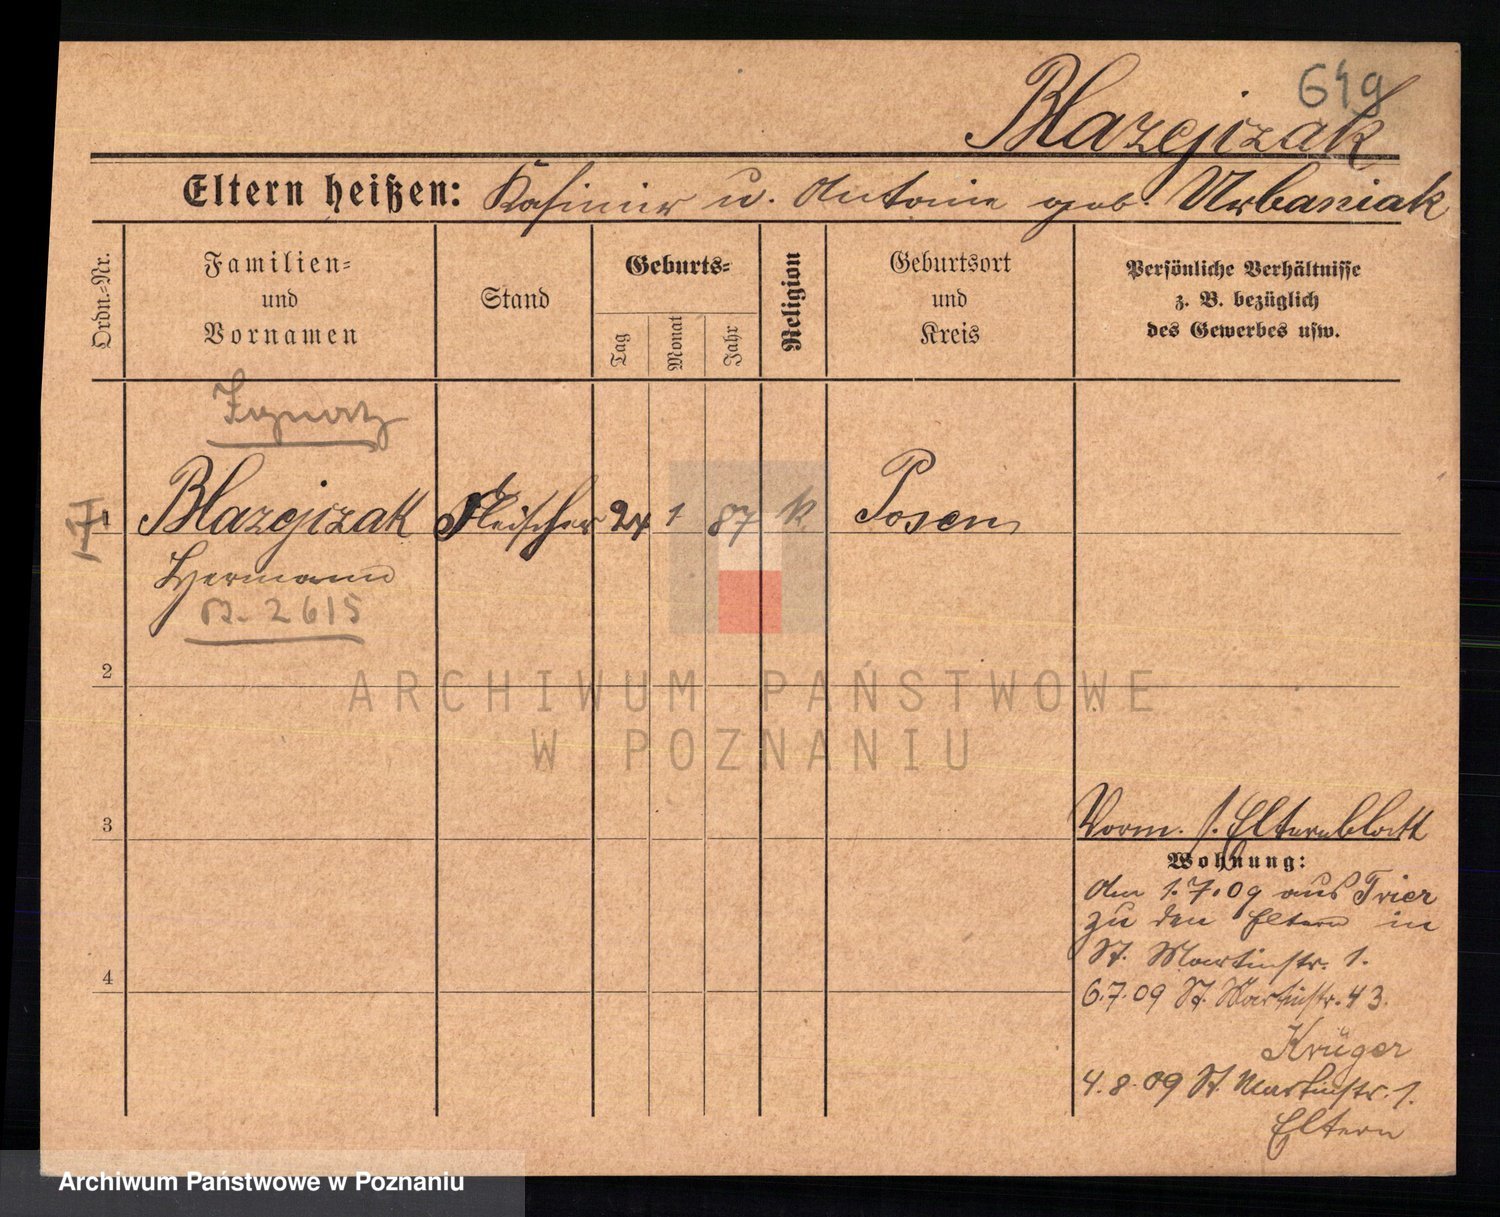 649
Blazejczak
Eltern heißen: Kasimir u. Antonie geb. Urbaniak
Ordn.=Nr.
Familien=
und
Vornamen
Stand
Geburts=
Tag
Monat
Jahr
Religion
Geburtsort
und
Kreis
Persönliche Verhältnisse
z. B. bezüglich
des Gewerbes usw.
Ignatz
1 Blazejczak Fleischer 24 1 87 k. Posen
Hermann
B. 2615
2
3
4
Vorm. s. Elternblatt
Wohnung:
Am 1.7.09 aus Trier
zu den Eltern in
St. Martinstr. 1.
6.7.09 St. Martinstr. 43.
Krüger
4.8.09 St. Martinstr. 1.
Eltern
ARCHIWUM PAŃSTWOWE
W POZNANIU
Archiwum Państwowe w Poznaniu